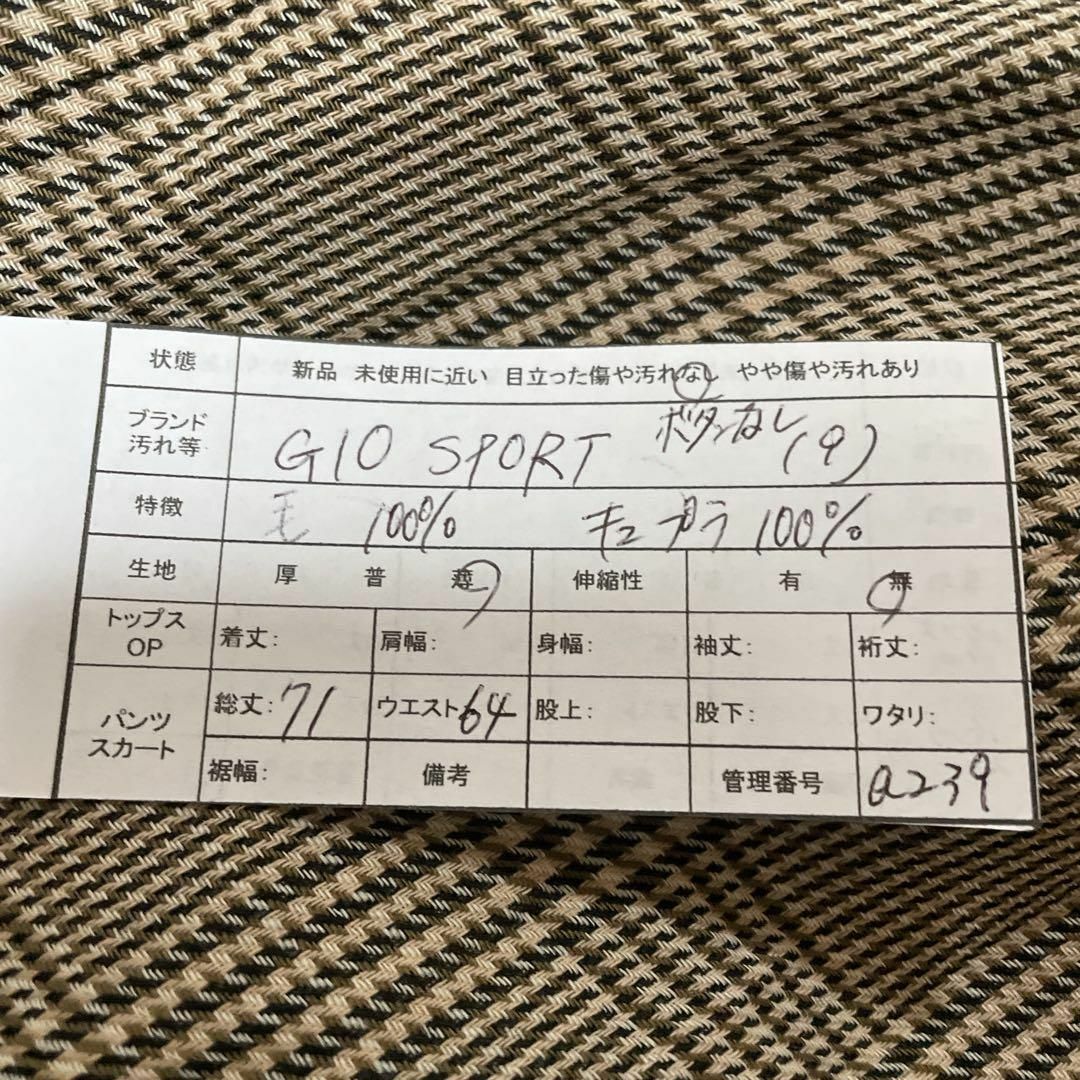 状態 新品 未使用に近い 目立った傷や汚れなし やや傷や汚れあり
ブランド 汚れ等 G10 SPORT ボタンなし (9)
特徴 毛 100% キュプラ 100%
生地 厚 普 薄 伸縮性 有 無
トップス OP 着丈: 肩幅: 身幅: 袖丈: 裄丈:
パンツ スカート 総丈:71 ウエスト64 股上: 股下: ワタリ:
裾幅: 備考 管理番号 a239